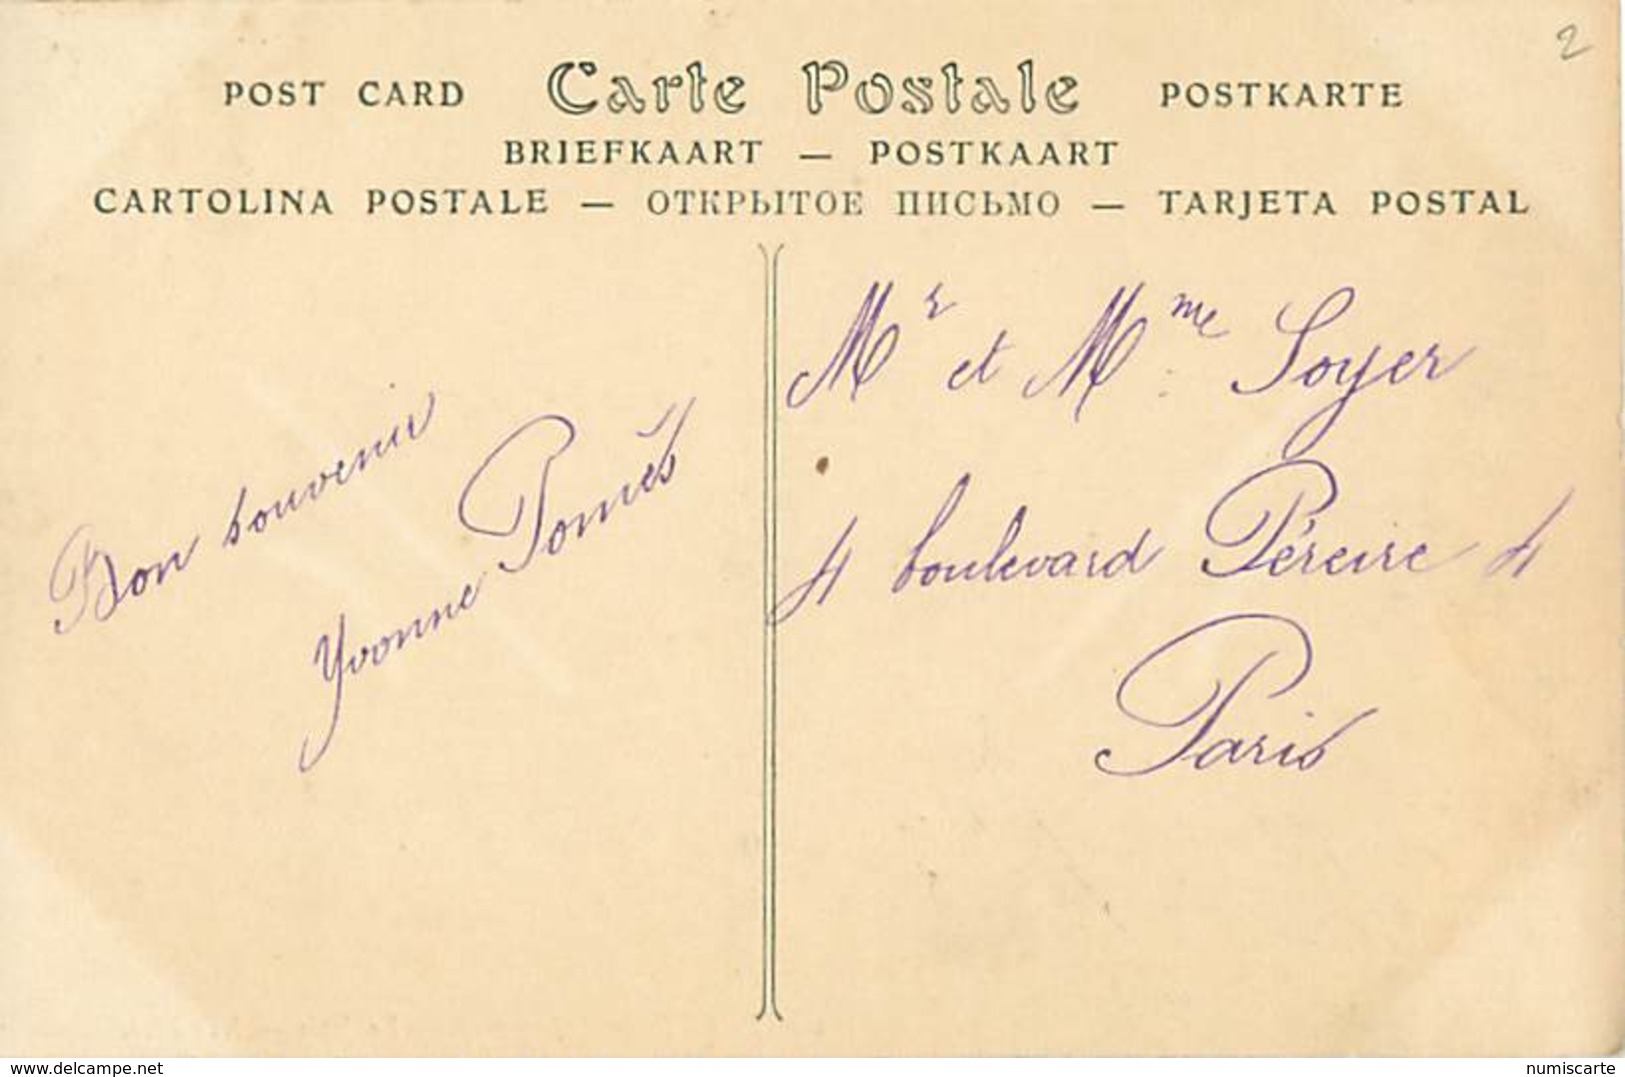 2
POST CARD Carte Postale POSTKARTE
BRIEFKAART — POSTKAART
CARTOLINA POSTALE — ОТКРЫТОЕ ПИСЬМО — TARJETA POSTAL
Bon souvenir
Yvonne Pomès
Mr et Mme Soyer
4 boulevard Péreire 4
Paris
www.delcampe.net
numiscarte